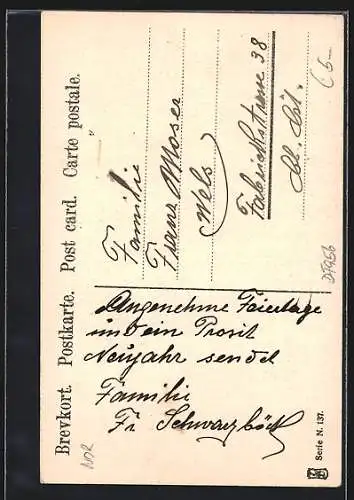 Brevkort. Postkarte. Post card. Carte postale.
Familie
Franz Moser
Wels
Fabrikstrasse 38
Ob. Öst.
Angenehme Feiertage
und ein Prosit
Neujahr sendet
Familie
Fr Schwarzböck
Serie N. 137.
NOR
6–